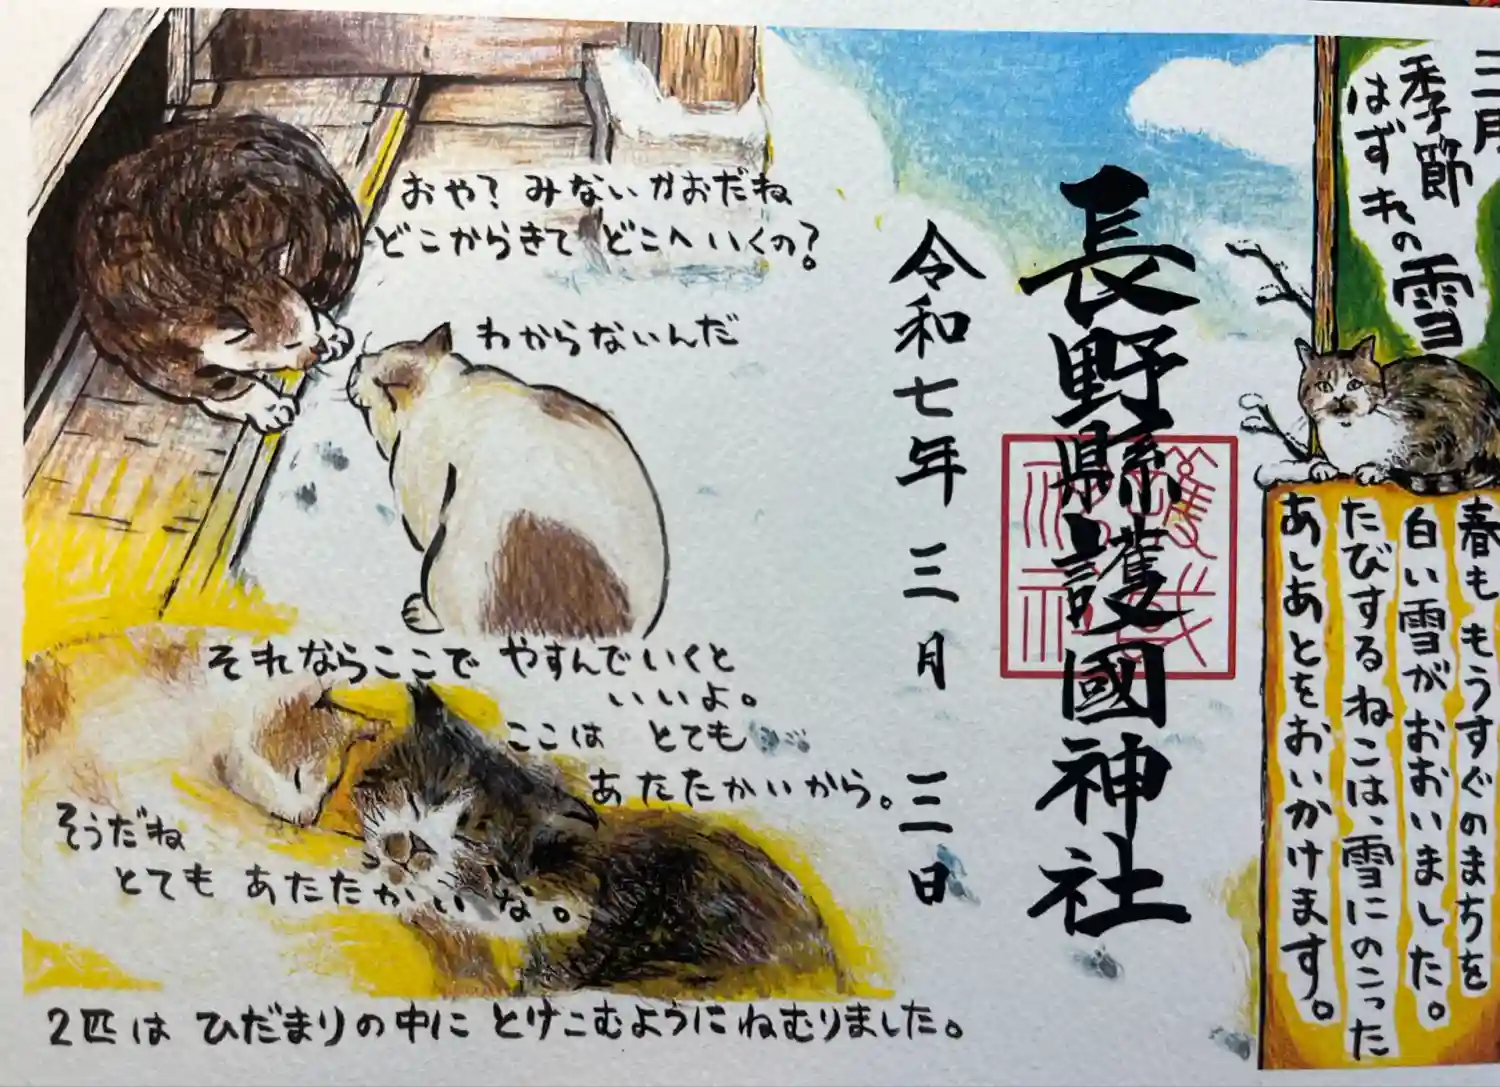 三月
季節
はずれの
雪
春も もうすぐのまちを
白い雪がおおいました。
たびするねこは、雪にのこった
あしあとをおいかけます。
長野縣護國神社
令和七年 三月 三日
おや?みないかおだね
どこからきて どこへいくの?
わからないんだ
それならここで やすんでいくと
いいよ。
ここは とても
あたたかいから。
そうだね
とても あたたかいな。
2匹は ひだまりの中に とけこむようにねむりました。